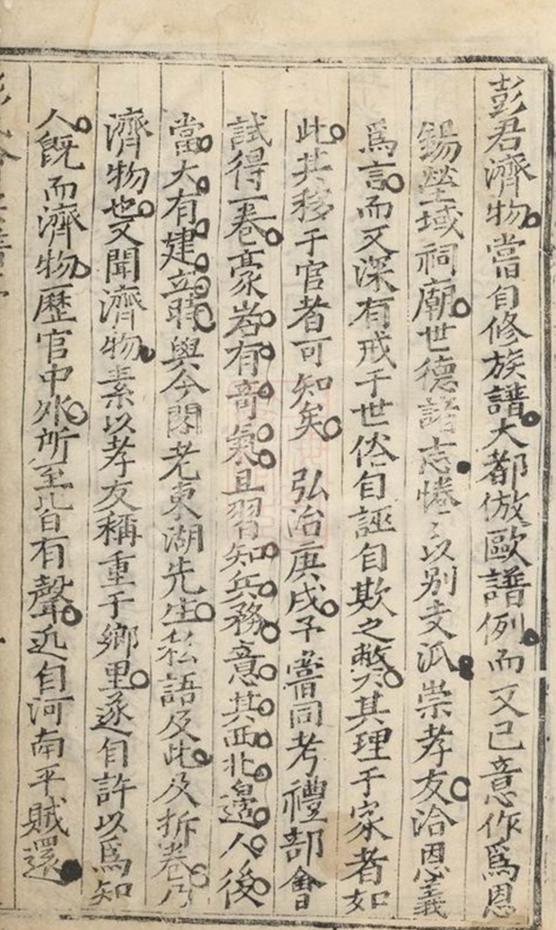 彭君濟物嘗自修族譜大都倣歐譜例而又已意作爲恩
錫塋域祠廟世德諸志惓〻以别支派崇孝友洽恩義
爲言而又深有戒于世俗自誣自欺之弊其理于家者如
此其移于官者可知矣 弘治庚戌予嘗同考禮部會
試得一卷豪岩有竒氣且習知兵務意其西北邊人後
當大有建立時與今閣老東湖先生私語及此及拆卷乃
濟物也又聞濟物素以孝友稱重于鄉里遂自許以爲知
人既而濟物歷官中外所至皆有聲近自河南平賊還